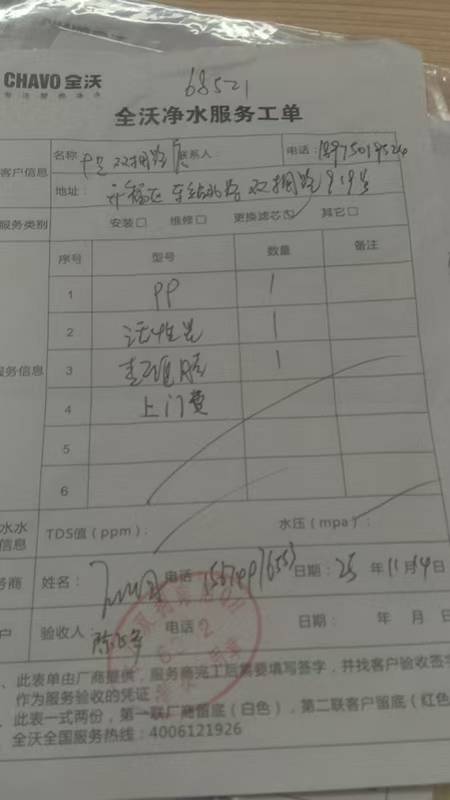 CHAVO全沃
68521
全沃净水服务工单
客户信息
名称 双拥路 联系人 电话:
地址: 开福区 车站北路 双拥路919号
服务类别 安装□ 维修□ 更换滤芯☑ 其它□
序号 型号 数量 备注
1 PP 1
2 活性炭 1
服务信息 3 1
4 上门费
5
6
水水
信息 TDS值(ppm): 水压(mpa):
务商 姓名: 电话 日期: 25 年 11 月 14 日
户 验收人: 电话 日期: 年 月 日
、此表单由厂商提供,服务商完工后需要填写签字,并找客户验收签字
作为服务验收的凭证
、此表一式两份,第一联厂商留底(白色),第二联客户留底(红色
全沃全国服务热线:4006121926